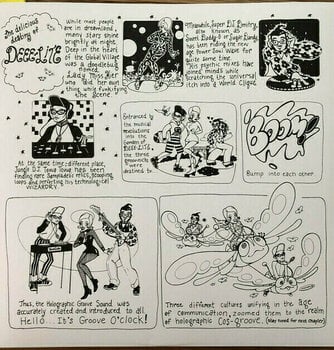 The delicious
Making of
DEEE-LITE
While most people
are in dreamland,
many stars shine
brightly at night.
Here in the heart
of the Global Village
was a deee-lovely
named
Lady Miss Kier
laid her own
thing while funkifying
the Scene
Meanwhile, Super DJ Dmitry,
also known as
Sweet Daddy &
has been riding the new
age Power Soul Wave for
quite some time.
His psychic mixes have
joined minds while
scratching the universal
itch into a World Clique.
At the same time: different place,
Jungle D.J. Towa Towa has been
finding rare Sampladelic relics, scooping
loops and perfecting his technological
WIZARDRY.
Entranced by
the musical
revelations
into the
Garden of
DEEE-LITE,
the three
groovniks
were
destined to..
BOOM!
Bump into each other
Thus, the Holographic Groove Sound was
accurately created and introduced to all.
Hello... It's Groove O'clock!
Three different cultures unifying in the age
of communication, zoomed them to the realm
of holographic Cos-groove. (Stay tuned for next chapter)